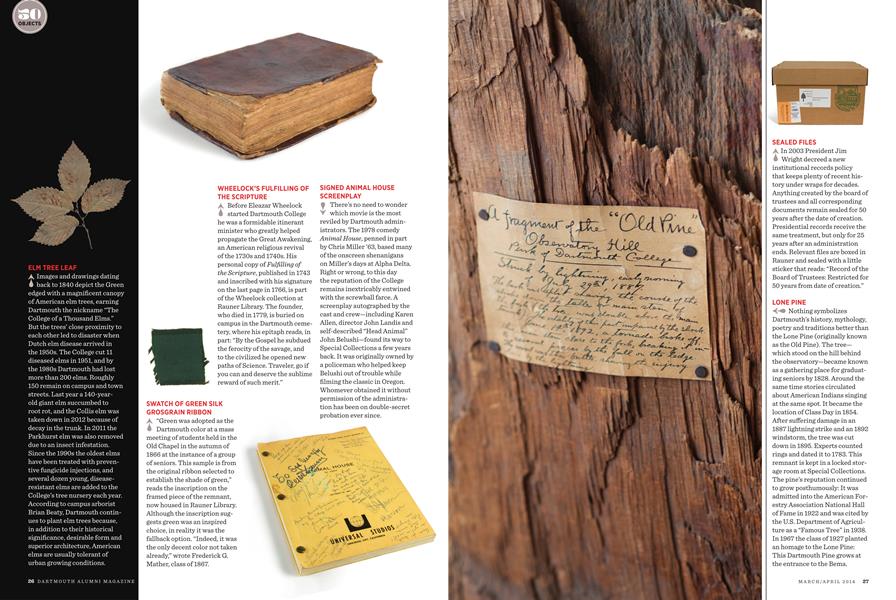 50
OBJECTS
ELM TREE LEAF
Images and drawings dating
back to 1840 depict the Green
edged with a magnificent canopy
of American elm trees, earning
Dartmouth the nickname "The
College of a Thousand Elms."
But the trees' close proximity to
each other led to disaster when
Dutch elm disease arrived in
the 1950s. The College cut 11
diseased elms in 1951, and by
the 1980s Dartmouth had lost
more than 200 elms. Roughly
150 remain on campus and town
streets. Last year a 140-year-
old giant elm succumbed to
root rot, and the Collis elm was
taken down in 2012 because of
decay in the trunk. In 2011 the
Parkhurst elm was also removed
due to an insect infestation.
Since the 1990s the oldest elms
have been treated with preven-
tive fungicide injections, and
several dozen young, disease-
resistant elms are added to the
College's tree nursery each year.
According to campus arborist
Brian Beaty, Dartmouth contin-
ues to plant elm trees because,
in addition to their historical
significance, desirable form and
superior architecture, American
elms are usually tolerant of
urban growing conditions.
26 DARTMOUTH ALUMNI MAGAZINE
SWATCH OF GREEN SILK
GROSGRAIN RIBBON
"Green was adopted as the
Dartmouth color at a mass
meeting of students held in the
Old Chapel in the autumn of
1866 at the instance of a group
of seniors. This sample is from
the original ribbon selected to
establish the shade of green,"
reads the inscription on the
framed piece of the remnant,
now housed in Rauner Library.
Although the inscription sug-
gests green was an inspired
choice, in reality it was the
fallback option. "Indeed, it was
the only decent color not taken
already," wrote Frederick G.
Mather, class of 1867.
WHEELOCK'S FULFILLING OF
THE SCRIPTURE
Before Eleazar Wheelock
started Dartmouth College
he was a formidable itinerant
minister who greatly helped
propagate the Great Awakening,
an American religious revival
of the 1730s and 1740s. His
personal copy of Fulfilling of
the Scripture, published in 1743
and inscribed with his signature
on the last page in 1766, is part
of the Wheelock collection at
Rauner Library. The founder,
who died in 1779, is buried on
campus in the Dartmouth ceme-
tery, where his epitaph reads, in
part: "By the Gospel he subdued
the ferocity of the savage, and
to the civilized he opened new
paths of Science. Traveler, go if
you can and deserve the sublime
reward of such merit."
SIGNED ANIMAL HOUSE
SCREENPLAY
There's no need to wonder
which movie is the most
reviled by Dartmouth admin-
istrators. The 1978 comedy
Animal House, penned in part
by Chris Miller '63, based many
of the onscreen shenanigans
on Miller's days at Alpha Delta.
Right or wrong, to this day
the reputation of the College
remains inextricably entwined
with the screwball farce. A
screenplay autographed by the
cast and crew—including Karen
Allen, director John Landis and
self-described "Head Animal"
John Belushi—found its way to
Special Collections a few years
back. It was originally owned by
a policeman who helped keep
Belushi out of trouble while
filming the classic in Oregon.
Whomever obtained it without
permission of the administra-
tion has been on double-secret
probation ever since.
ANIMAL HOUSE
UNIVERSAL STUDIOS
A fragment of the "Old Pine"
Observatory Hill
Park of Dartmouth College
Struck by lightning, early morning
July 29th 1887
SEALED FILES
In 2003 President Jim
Wright decreed a new
institutional records policy
that keeps plenty of recent his-
tory under wraps for decades.
Anything created by the board of
trustees and all corresponding
documents remain sealed for 50
years after the date of creation.
Presidential records receive the
same treatment, but only for 25
years after an administration
ends. Relevant files are boxed in
Rauner and sealed with a little
sticker that reads: "Record of the
Board of Trustees: Restricted for
50 years from date of creation."
LONE PINE
Nothing symbolizes
Dartmouth's history, mythology,
poetry and traditions better than
the Lone Pine (originally known
as the Old Pine). The tree—
which stood on the hill behind
the observatory—became known
as a gathering place for graduat-
ing seniors by 1828. Around the
same time stories circulated
about American Indians singing
at the same spot. It became the
location of Class Day in 1854.
After suffering damage in an
1887 lightning strike and an 1892
windstorm, the tree was cut
down in 1895. Experts counted
rings and dated it to 1783. This
remnant is kept in a locked stor-
age room at Special Collections.
The pine's reputation continued
to grow posthumously: It was
admitted into the American For-
estry Association National Hall
of Fame in 1922 and was cited by
the U.S. Department of Agricul-
ture as a "Famous Tree" in 1938.
In 1967 the class of 1927 planted
an homage to the Lone Pine:
This Dartmouth Pine grows at
the entrance to the Bema.
MARCH/APRIL 2014 27